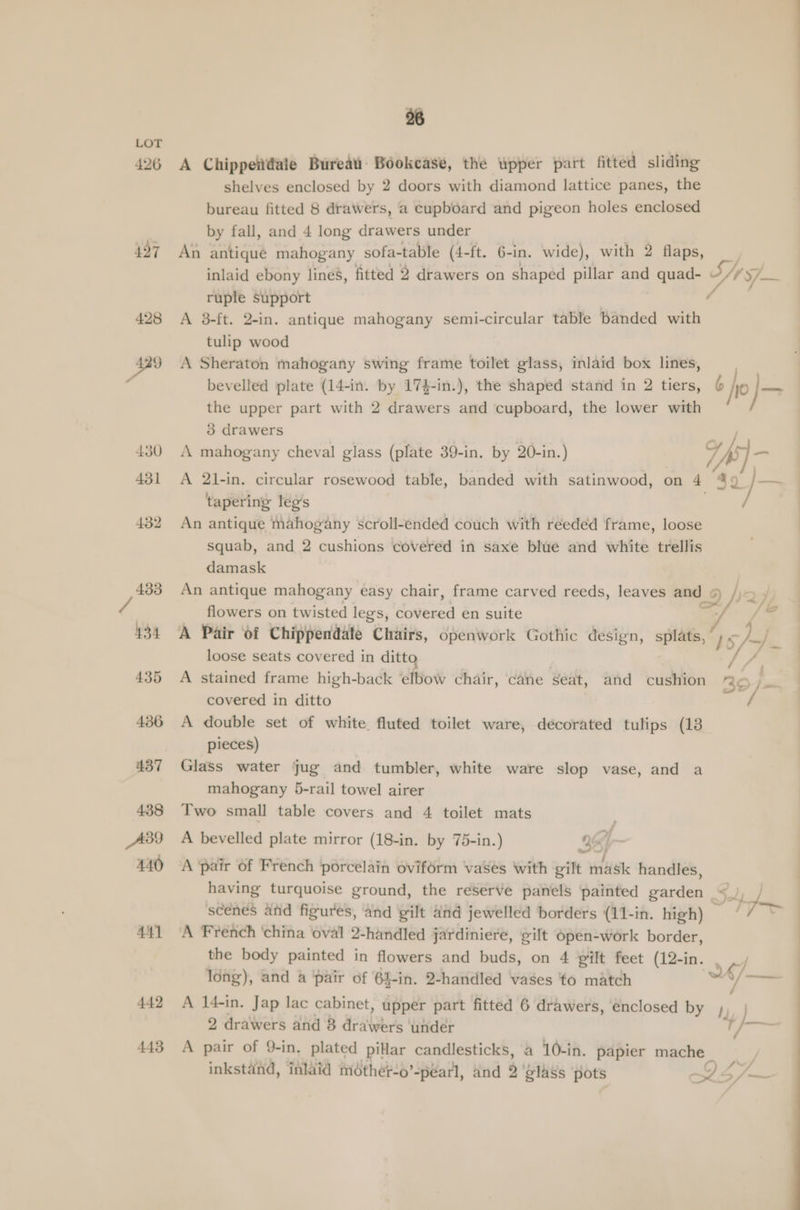 26
LOT
426 A Chippendale Bureau Bookcase, the upper part fitted sliding
shelves enclosed by 2 doors with diamond lattice panes, the
bureau fitted 8 drawers, a cupboard and pigeon holes enclosed
by fall, and 4 long drawers under
427 An antique mahogany sofa-table (4-ft. 6-in. wide), with 2 flaps,
inlaid ebony lines, fitted 2 drawers on shaped pillar and quad-
ruple support
428 A 3-ft. 2-in. antique mahogany semi-circular table banded with
tulip wood
429 A Sheraton mahogany swing frame toilet glass, inlaid box lines,
bevelled plate (14-in. by 17½-in.), the shaped stand in 2 tiers,
the upper part with 2 drawers and cupboard, the lower with
3 drawers
430 A mahogany cheval glass (plate 39-in. by 20-in.)
431 A 21-in. circular rosewood table, banded with satinwood, on 4
tapering legs
432 An antique mahogany scroll-ended couch with reeded frame, loose
squab, and 2 cushions covered in saxe blue and white trellis
damask
433 An antique mahogany easy chair, frame carved reeds, leaves and
flowers on twisted legs, covered en suite
434 A Pair of Chippendale Chairs, openwork Gothic design, splats,
loose seats covered in ditto
435 A stained frame high-back elbow chair, cane seat, and cushion
covered in ditto
436 A double set of white fluted toilet ware, decorated tulips (13
pieces)
437 Glass water jug and tumbler, white ware slop vase, and a
mahogany 5-rail towel airer
438 Two small table covers and 4 toilet mats
439 A bevelled plate mirror (18-in. by 75-in.)
440 A pair of French porcelain oviform vases with gilt mask handles,
having turquoise ground, the reserve panels painted garden
scenes and figures, and gilt and jewelled borders (11-in. high)
441 A French china oval 2-handled jardiniere, gilt open-work border,
the body painted in flowers and buds, on 4 gilt feet (12-in.
long), and a pair of 6½-in. 2-handled vases to match
442 A 14-in. Jap lac cabinet, upper part fitted 6 drawers, enclosed by
2 drawers and 3 drawers under
443 A pair of 9-in. plated pillar candlesticks, a 10-in. papier mache
inkstand, inlaid mother-o'-pearl, and 2 glass pots